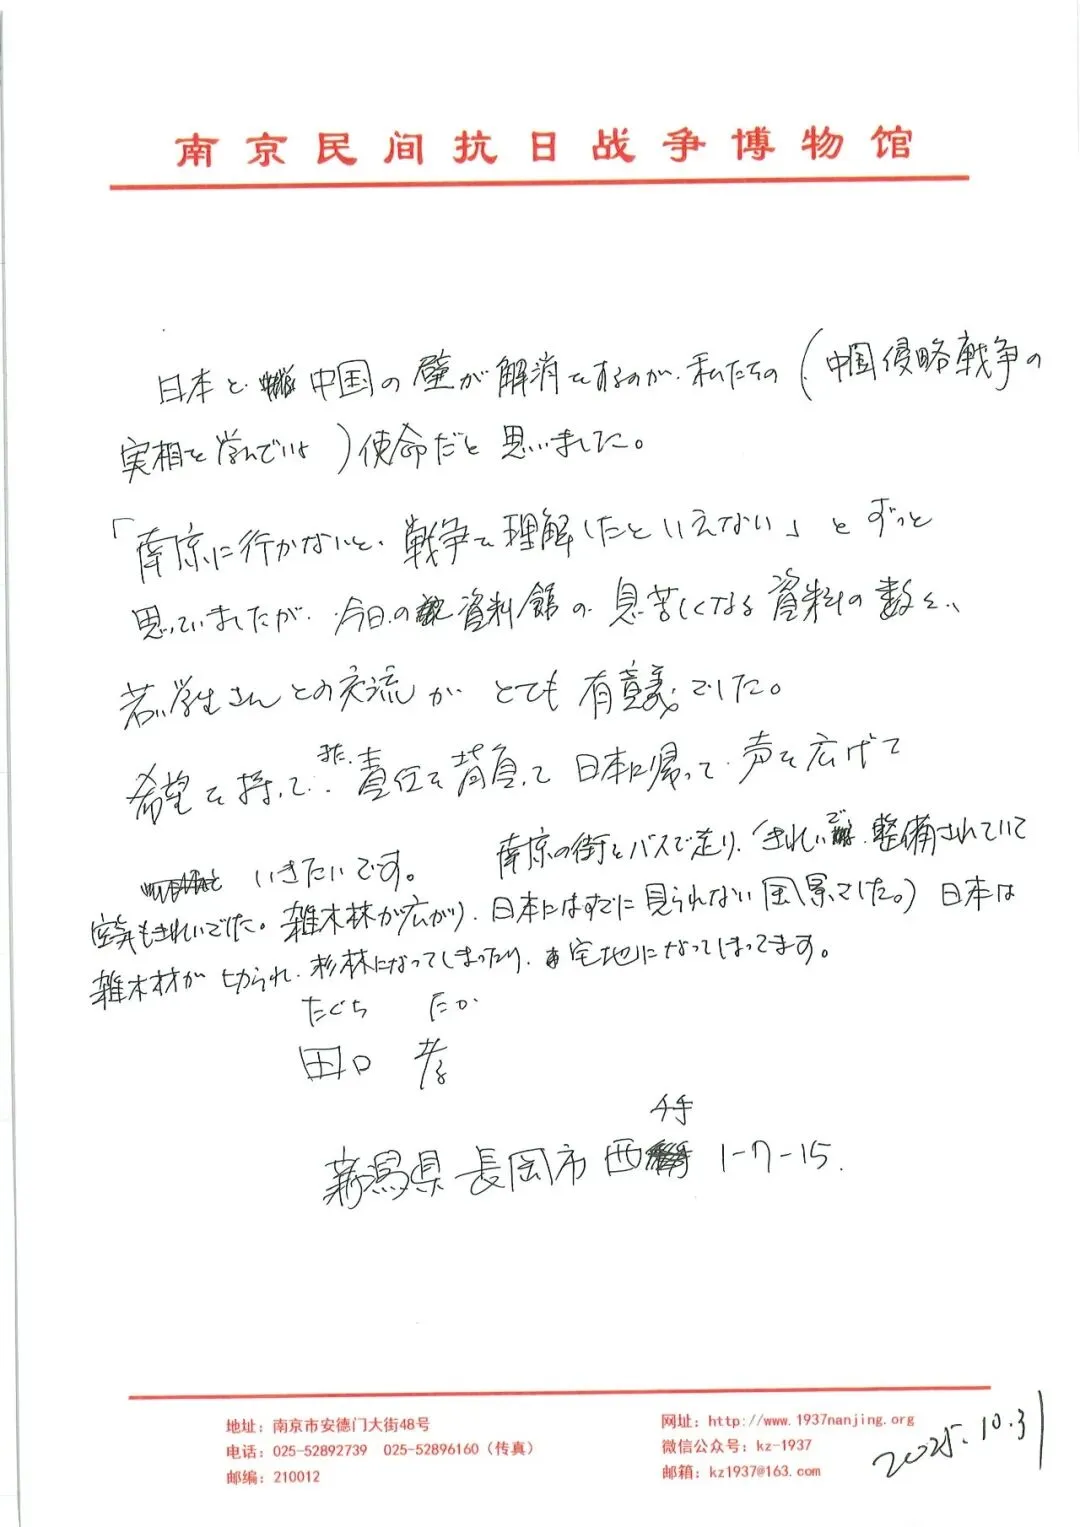 南京民间抗日战争博物馆
日本と中国の壁が解消をするのが、私たちの(中国侵略戦争の
実相を学んでいる)使命だと思いました。
「南京に行かないと、戦争を理解したといえない」とずっと
思っていましたが、今日の資料館の息苦しくなる資料の数々、
若い学生さんとの交流がとても有意義でした。
希望を持って、また、責任を背負って日本に帰って、声を広げて
いきたいです。 南京の街をバスで走り、(きれいで、整備されていて
空気もきれいでした。雑木林が広がり、日本にはすでに見られない風景でした。)日本は
雑木林が切られ、杉林になってしまったり、宅地になってしまってます。
たぐち たか
田口 孝
千手
新潟県長岡市西 1-7-15.
地址：南京市安德门大街48号
电话：025-52892739 025-52896160（传真）
邮编：210012
网址：http://www.1937nanjing.org
微信公众号：kz-1937
邮箱：kz1937@163.com
2025.10.31